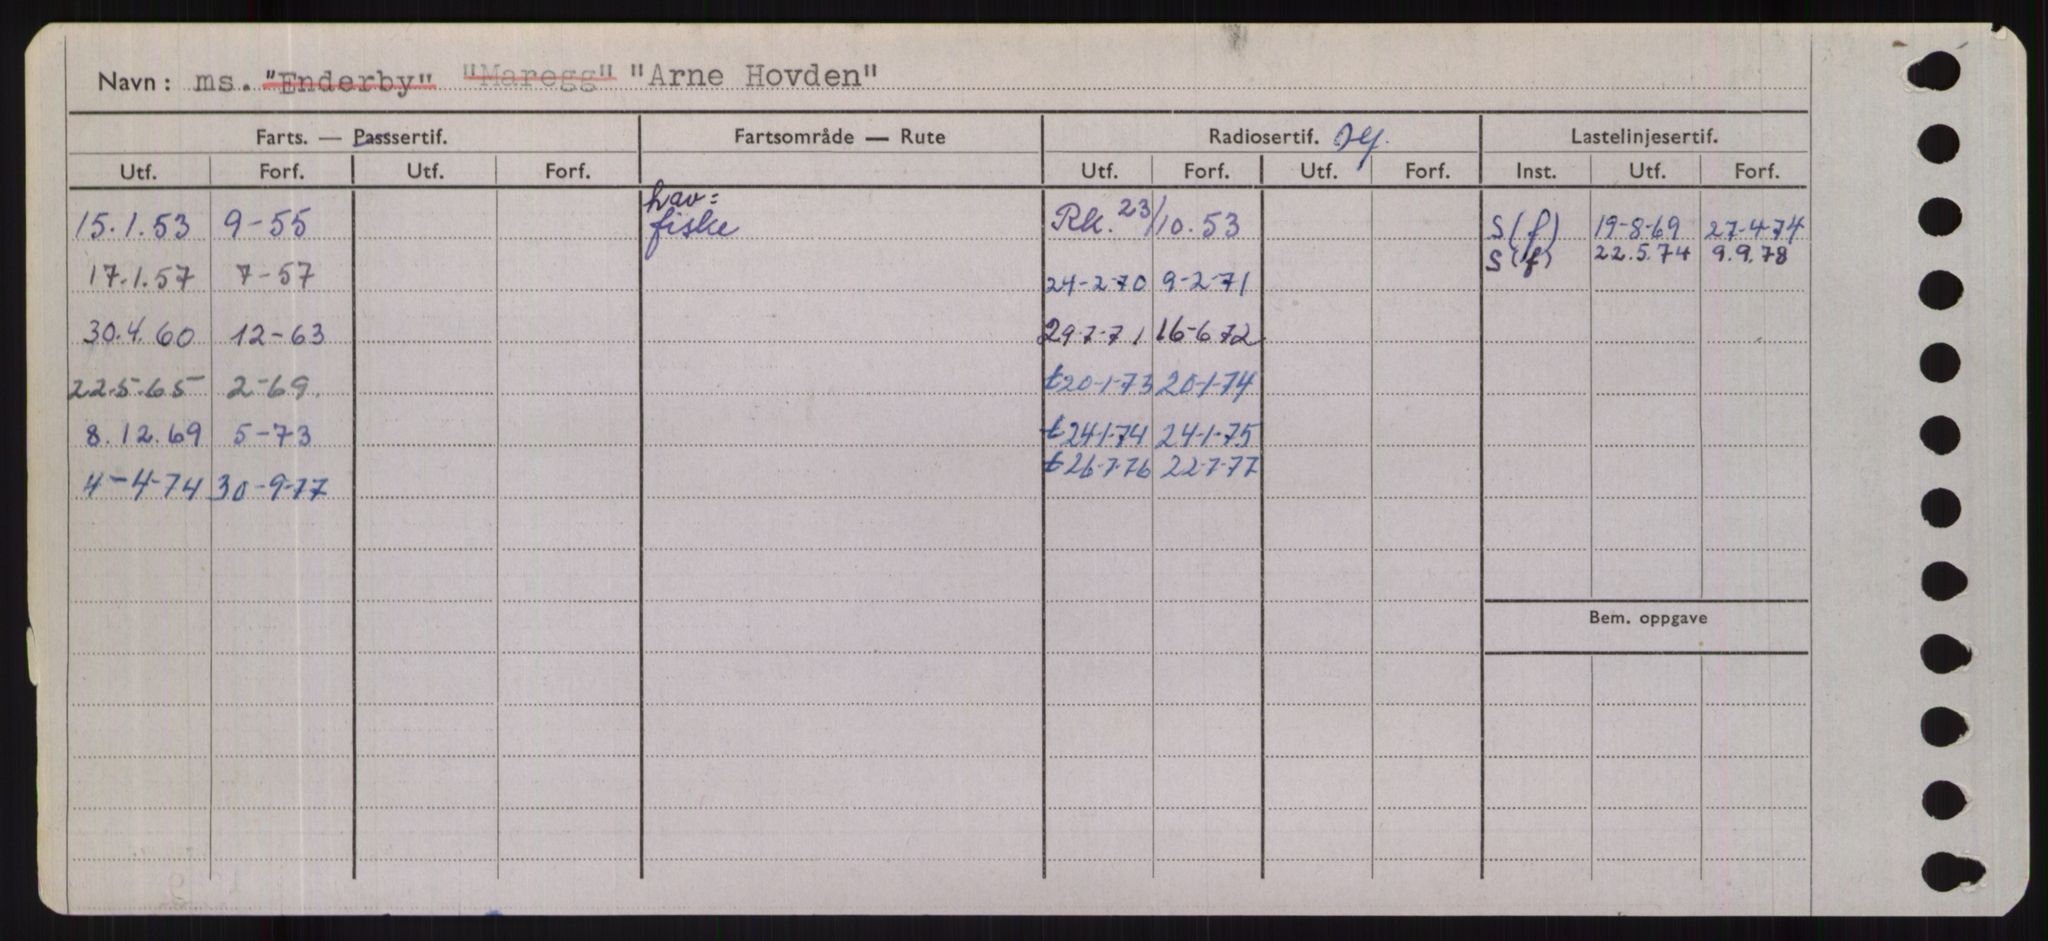 Navn: ms. "Enderby" "Maregg" "Arne Hovden"
Farts. — Passsertif. Fartsområde — Rute Radiosertif. Lastelinjesertif.
Utf. Forf. Utf. Forf. Utf. Forf. Utf. Forf. Inst. Utf. Forf.
hav=
15.1.53 9-55 fiske Rk. 23/10.53 S(f) 19-8-69 27-4-74
S(f) 22.5.74 9.9.78
17.1.57 7-57 24-2-70 9-2-71
30.4.60 12-63 29-7-71 16-6-72
22-5-65 2-69. t20-1-73 20-1-74
8.12.69 5-73 t24-1-74 24-1-75
t26-7-76 22-7-77
4-4-74 30-9-77
Bem. oppgave